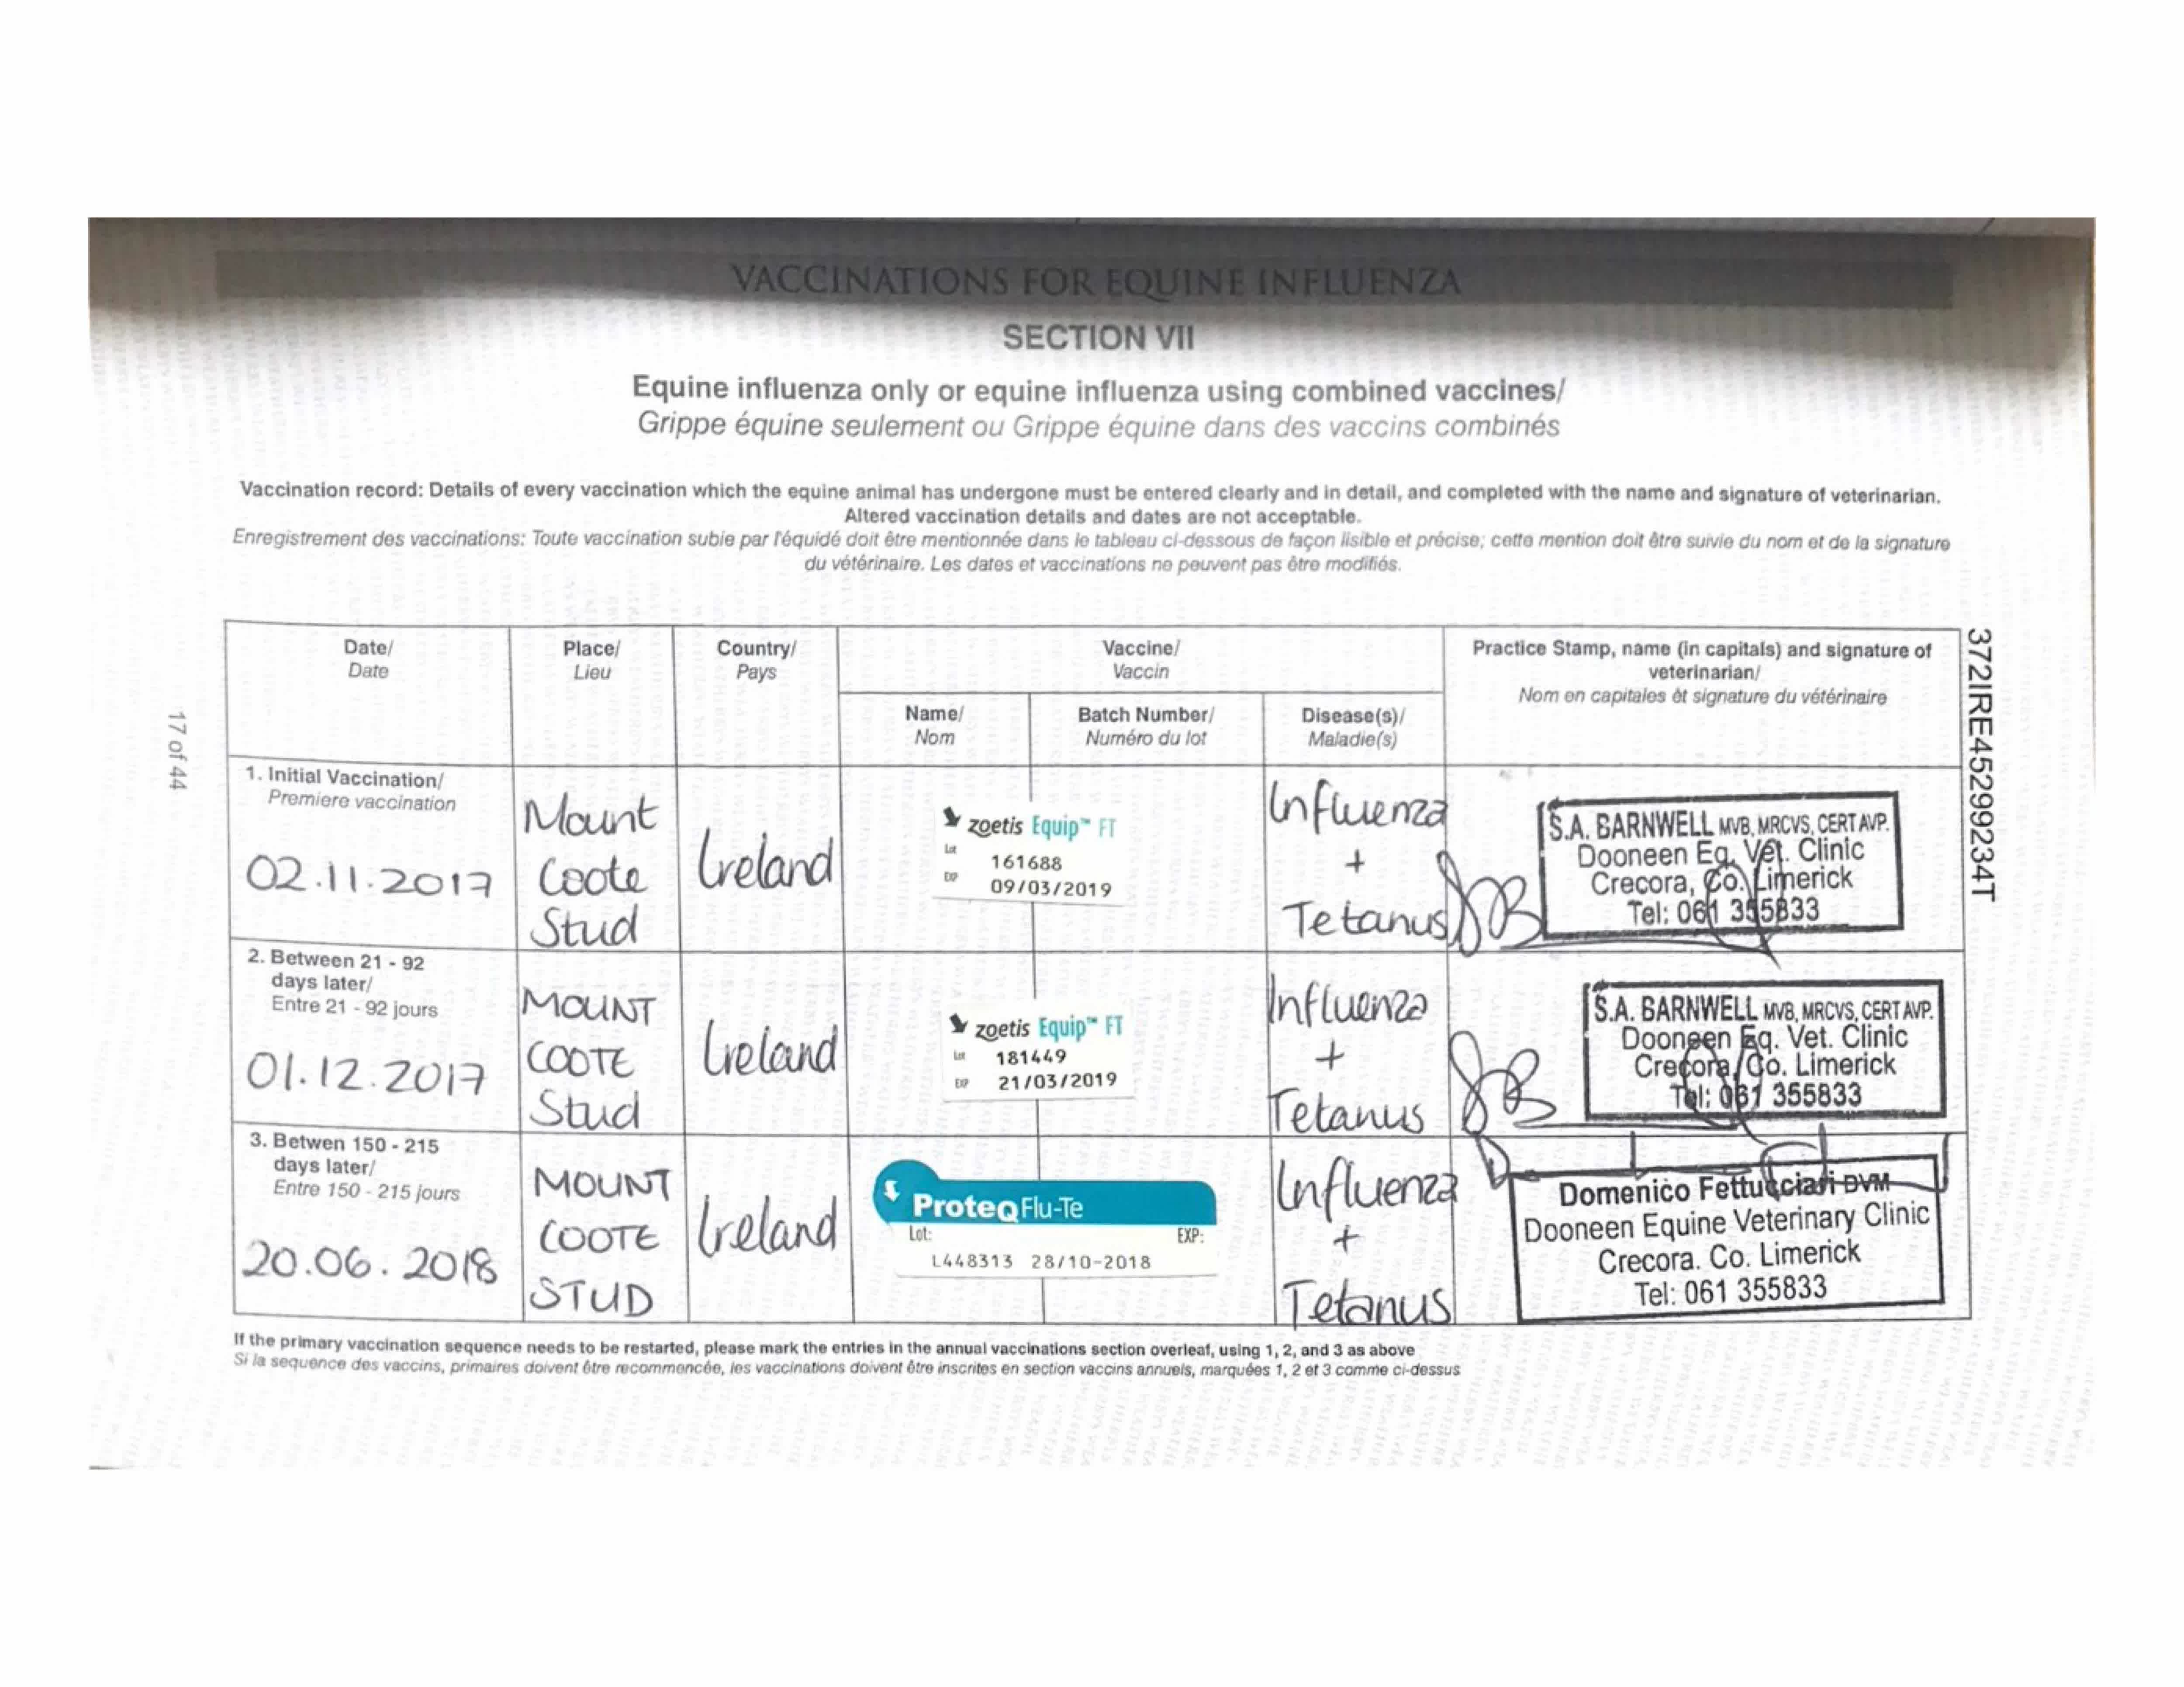 VACCINATIONS FOR EQUINE INFLUENZA
SECTION VII
Equine influenza only or equine influenza using combined vaccines/
Grippe équine seulement ou Grippe équine dans des vaccins combinés
Vaccination record: Details of every vaccination which the equine animal has undergone must be entered clearly and in detail, and completed with the name and signature of veterinarian.
Altered vaccination details and dates are not acceptable.
Enregistrement des vaccinations: Toute vaccination subie par l'équidé doit être mentionnée dans le tableau ci-dessous de façon lisible et précise; cette mention doit être suivie du nom et de la signature
du vétérinaire. Les dates et vaccinations ne peuvent pas être modifiés.
Date/
Date
Place/
Lieu
Country/
Pays
Vaccine/
Vaccin
Name/
Nom
Batch Number/
Numéro du lot
Disease(s)/
Maladie(s)
Practice Stamp, name (in capitals) and signature of
veterinarian/
Nom en capitales êt signature du vétérinaire
1. Initial Vaccination/
Premiere vaccination
02.11.2017
Mount
Coote
Stud
Ireland
zoetis Equip™ FT
Lot
161688
EXP
09/03/2019
Influenza
+
Tetanus
S.A. BARNWELL MVB, MRCVS, CERT AVP.
Dooneen Eq. Vet. Clinic
Crecora, Co. Limerick
Tel: 061 355833
2. Between 21 - 92
days later/
Entre 21 - 92 jours
01.12.2017
MOUNT
COOTE
Stud
Ireland
zoetis Equip™ FT
Lot
181449
EXP
21/03/2019
Influenza
+
Tetanus
S.A. BARNWELL MVB, MRCVS, CERT AVP.
Dooneen Eq. Vet. Clinic
Crecora, Co. Limerick
Tel: 061 355833
3. Betwen 150 - 215
days later/
Entre 150 - 215 jours
20.06.2018
MOUNT
COOTE
STUD
Ireland
ProteqFlu-Te
Lot: EXP:
L448313 28/10-2018
Influenza
+
Tetanus
Domenico Fettucciari DVM
Dooneen Equine Veterinary Clinic
Crecora. Co. Limerick
Tel: 061 355833
If the primary vaccination sequence needs to be restarted, please mark the entries in the annual vaccinations section overleaf, using 1, 2, and 3 as above
Si la sequence des vaccins, primaires doivent être recommencée, les vaccinations doivent être inscrites en section vaccins annuels, marquées 1, 2 et 3 comme ci-dessus
17 of 44
372IRE45299234T